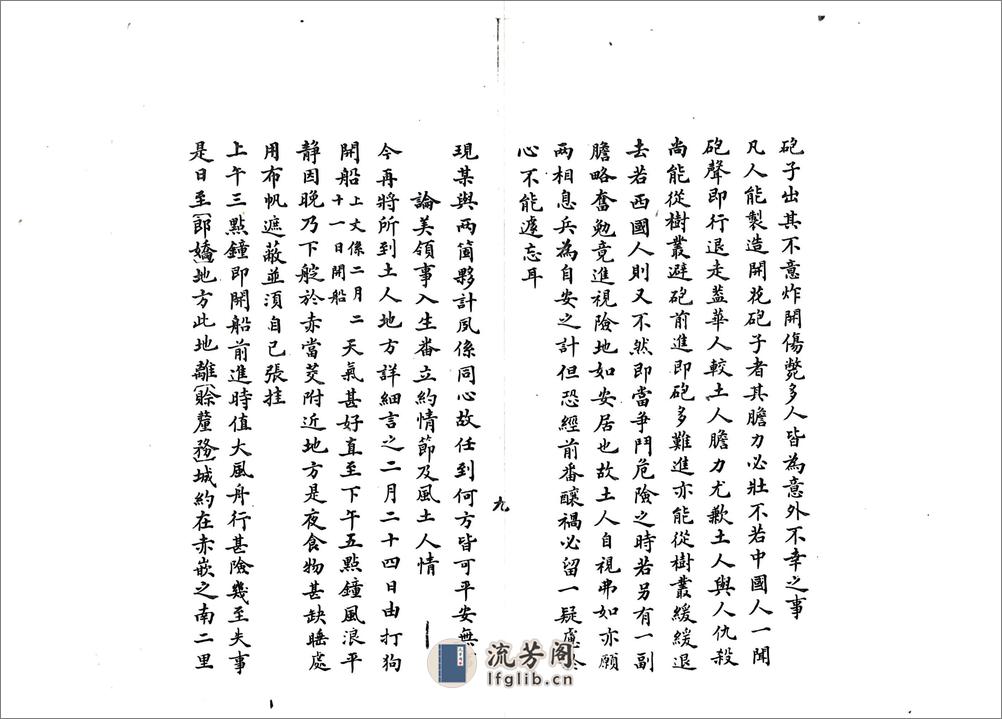 砲子出其不意炸開傷斃多人皆為意外不幸之事
凡人能製造開花砲子者其膽力必壯不若中國人一聞
砲聲即行退走蓋華人較土人膽力尤歉土人與人仇殺
尚能從樹叢避砲前進即砲多難進亦能從樹叢緩緩退
去若西國人則又不然即當爭鬥危險之時若另有一副
膽略奮勉竟進視險地如安居也故土人自視弗如亦願
兩相息兵為自安之計但恐經前番釀禍必留一疑慮於
心不能遽忘耳
九
現某與兩箇夥計夙係同心故任到何方皆可平安無
論美領事入生番立約情節及風土人情
今再將所到土人地方詳細言之二月二十四日由打狗
開船上文係二月二十一日開船天氣甚好直至下午五點鐘風浪平
靜因晚乃下碇於赤當茭附近地方是夜食物甚缺睡處
用布帆遮蔽並須自己張挂
上午三點鐘即開船前進時值大風舟行甚險幾至失事
是日至郎嬌地方此地離賒釐務城約在赤嵌之南二里
流芳阁
lfglib.cn